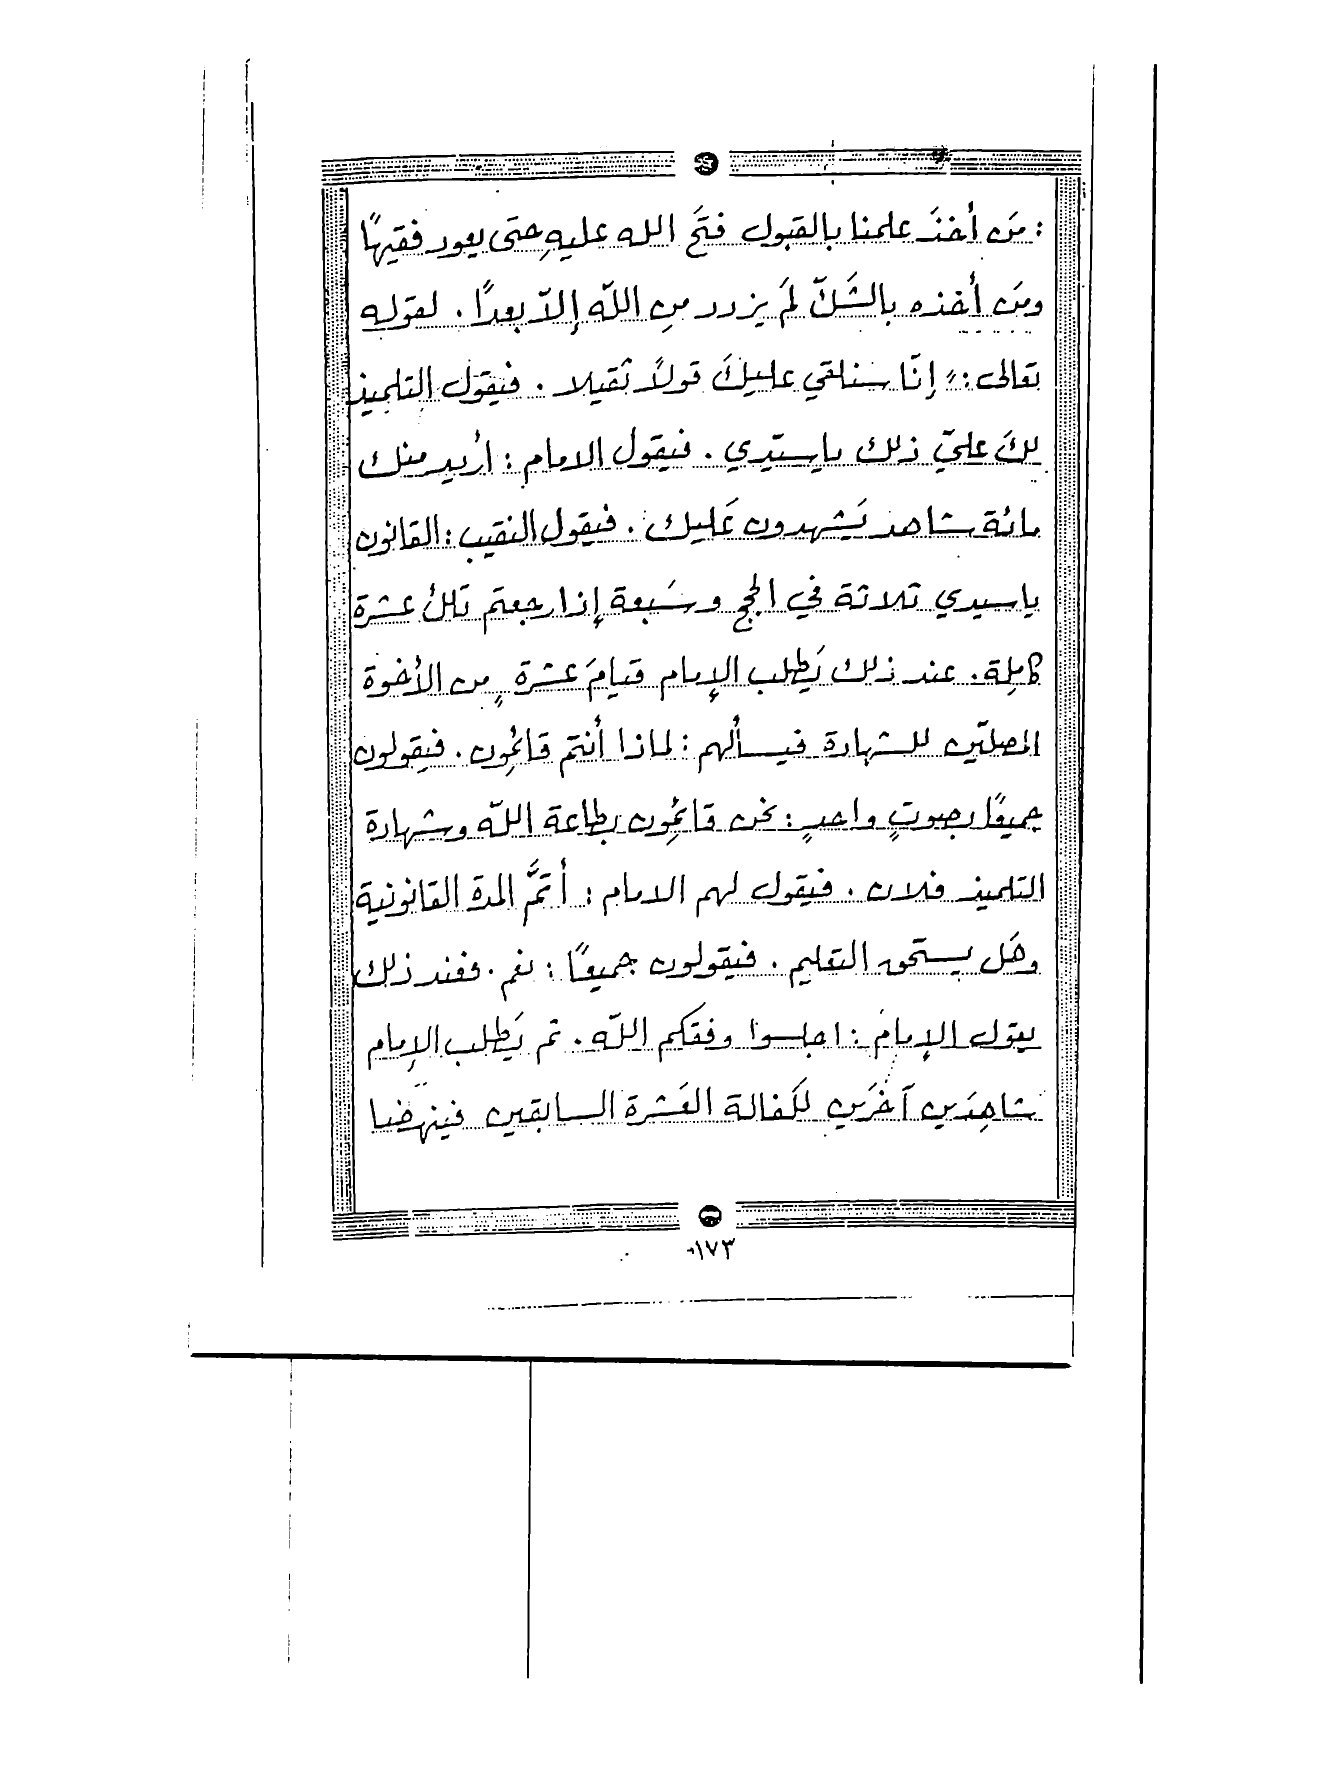 : مَن أخذَ علمنا بالقبول فتَح الله عليهِ حتى يعود فقيهًا
ومَن أخذه بالشَكّ لمَ يزدد مِن اللّه إلاّ بعدًا . لقوله
تعالى : " إنّا سنلقي عليكَ قولاً ثقيلا . فيقول التلميذ
لكَ عليّ ذلك ياسيّدي . فيقول الامام : أُريد منك
مائة شاهد يَشهدون عَليك . فيقول النقيب : القانون
ياسيدي ثلاثة في الحج وسَبعة إذا رجعتم تلكُ عشرة
كامِلة . عند ذلك يَطلب الإمام قيامَ عشرة مِن الأخوة
المصليّن للشهادة فيسألهم : لماذا أنتم قائمون . فيقولون
جميعًا بصوتٍ واحدٍ : نحن قائمُون بطاعة اللّه وشهادة
التلميذ فلان . فيقول لهم الامام : أتمَّ المدة القانونية
وهَل يستحق التعليم . فيقولون جميعًا : نعم . فعند ذلك
يقول الإمام : اجلسوا وفقكم اللّه . ثم يَطلب الإمام
شاهِدَين آخرَين لكَفالة العَشرة السابقين فينهضا
١٧٣